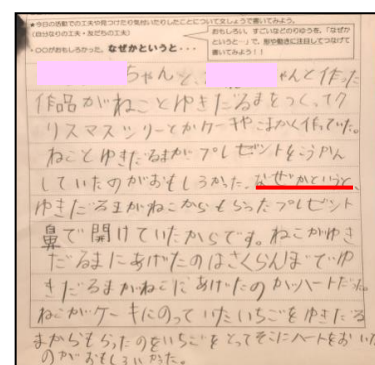 ★今日の活動での工夫や見つけたり気付いたりしたことについて文しょうで書いてみよう。
(自分なりの工夫・友だちの工夫)
・〇〇がおもしろかった。なぜかというと・・・
おもしろい、すごいなどのりゆうを、「なぜか
というと…」で、形や動きに注目してつなげて
書いてみよう!!
ちゃんと、ちゃんと作った
作品がねことゆきだるまをつくってク
リスマスツリーとかケーキやこまかく作っていた。
ねことゆきだるまがプレゼントをこうかん
していたのがおもしろかった。なぜかというと、
ゆきだるまがねこからもらったプレゼント
鼻で開けていたからです。ねこがゆき
だるまにあげたのはさくらんぼでゆ
きだるまがねこにあげたのがハートだった。
ねこがケーキにのっていたいちごをゆきだる
まからもらったのをいちごをとってそこにハートをおいた
のがおもしろかった。